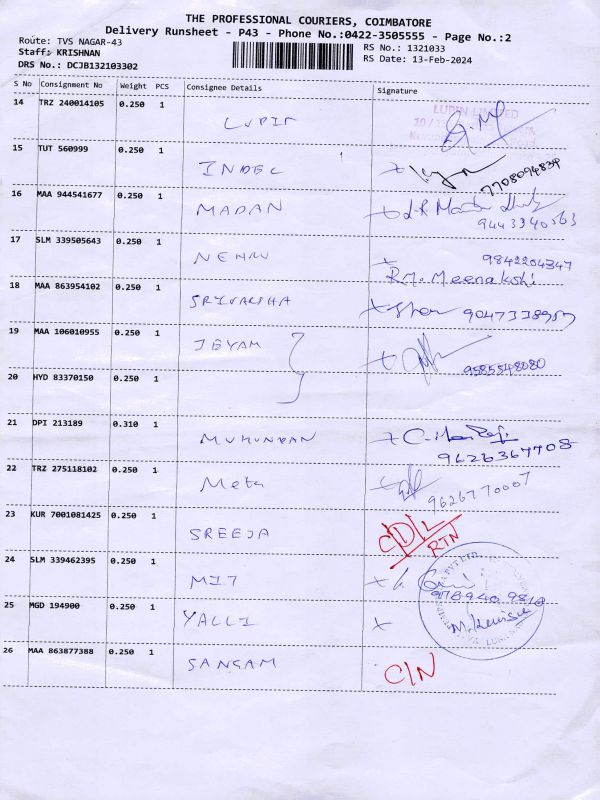 THE PROFESSIONAL COURIERS, COIMBATORE
Delivery Runsheet - P43 - Phone No.:0422-3505555 - Page No.:2
Route: TVS NAGAR-43 RS No.: 1321033
Staff: KRISHNAN RS Date: 13-Feb-2024
DRS No.: DCJB132103302
S No Consignment No Weight PCS Consignee Details Signature
14 TRZ 240014105 0.250 1 LUPIN LUPIN LIMITED
15 TUT 560999 0.250 1 INDEL 7708094834
16 MAA 944541677 0.250 1 MADAN 9443340563
17 SLM 339505643 0.250 1 NEHRU 9842204347
RM. Meenakshi
18 MAA 863954102 0.250 1 SRIVARSHA 9047338957
19 MAA 106010955 0.250 1 JEYAM 9585548080
20 HYD 83370150 0.250 1
21 DPI 213189 0.310 1 MUKUNDAN
9626367708
22 TRZ 275118102 0.250 1 Meta 9626770007
23 KUR 7001081425 0.250 1 SREEJA CDL
RTN
24 SLM 339462395 0.250 1 MIT
25 MGD 194900 0.250 1 YALLI
26 MAA 863877388 0.250 1 SANGAM C/N